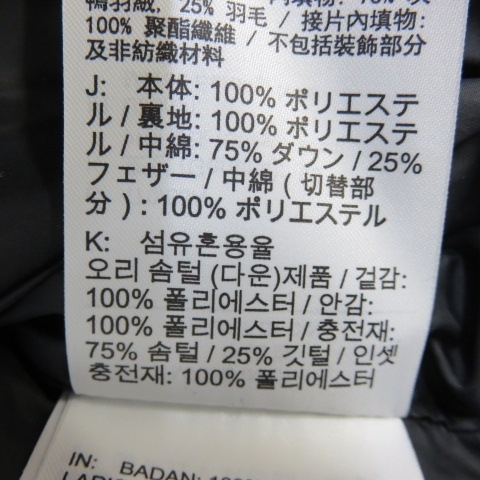 鴨羽絨, 25% 羽毛 / 接片內填物:
100% 聚酯纖維 / 不包括裝飾部分
及非紡織材料
J: 本体: 100% ポリエステ
ル / 裏地: 100% ポリエステ
ル / 中綿: 75% ダウン / 25%
フェザー / 中綿 ( 切替部
分 ) : 100% ポリエステル
K: 섬유혼용율
오리 솜털 (다운)제품 / 겉감:
100% 폴리에스터 / 안감:
100% 폴리에스터 / 충전재:
75% 솜털 / 25% 깃털 / 인셋
충전재: 100% 폴리에스터
IN: BADAN: